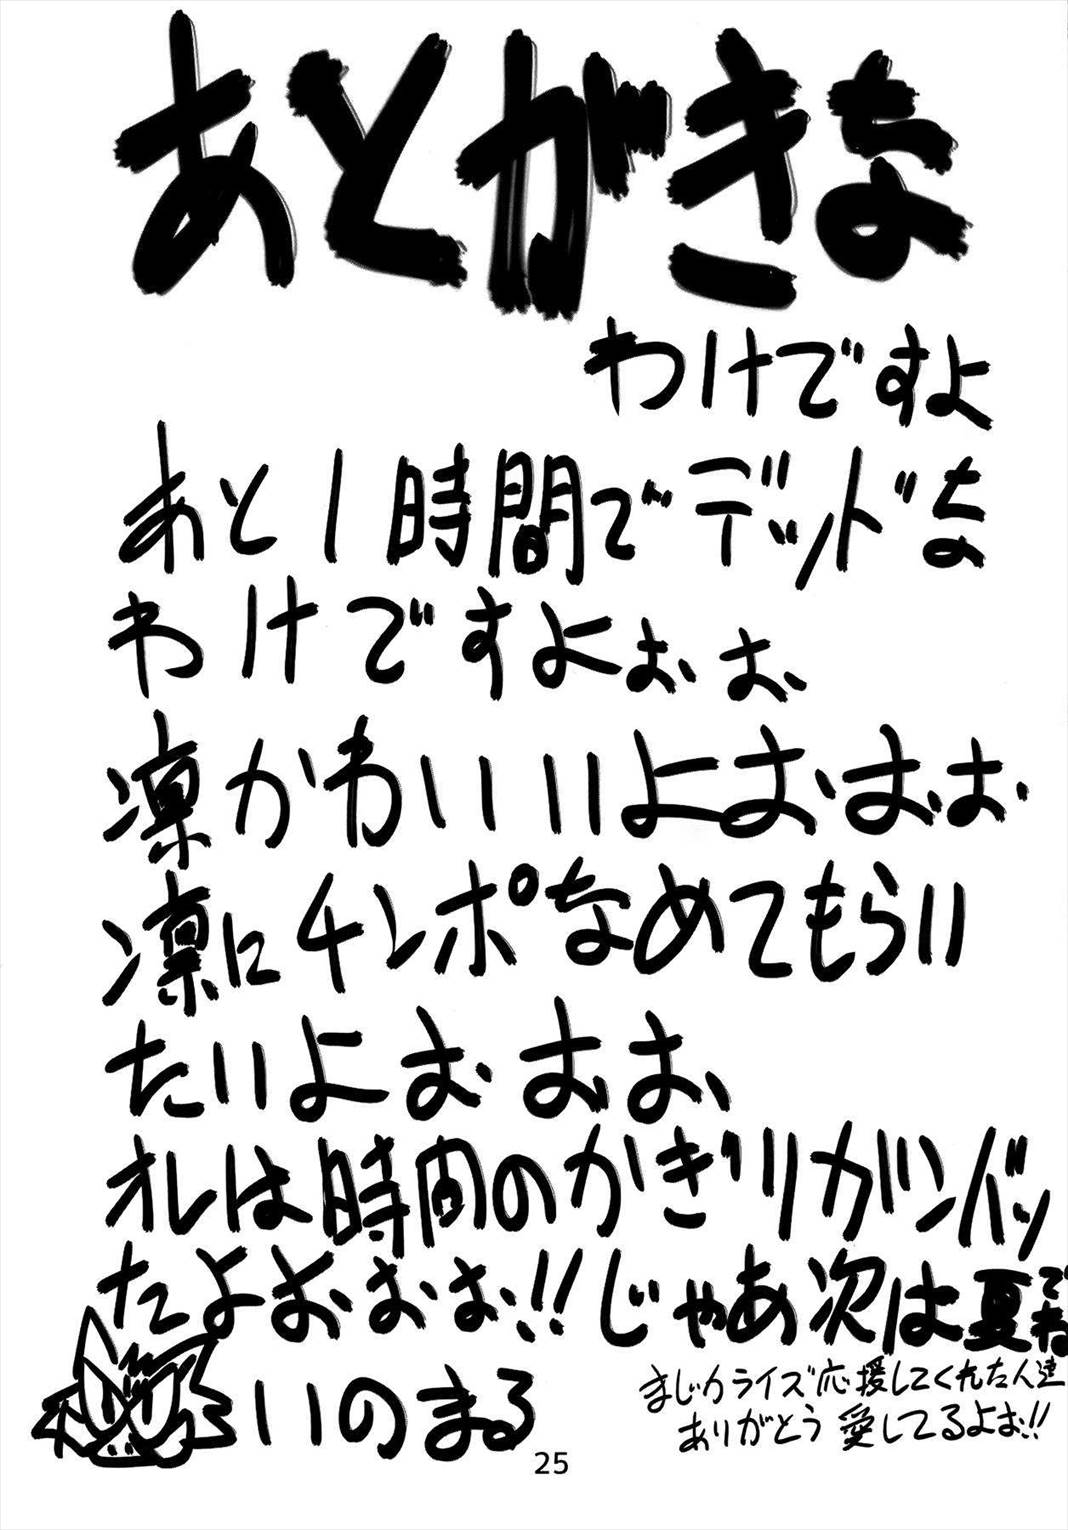 あとがきな
わけですよ
あと1時間でデッドな
わけですよぉぉ
凛かわいいよおぉおぉ
凛にチンポなめてもらい
たいよぉおぉ
オレは時間のかぎりガンバッ
たよおぉぉ!!じゃあ次は夏でね
いのまる
まじかライズ応援してくれた人達
ありがとう 愛してるよぉ!!
25